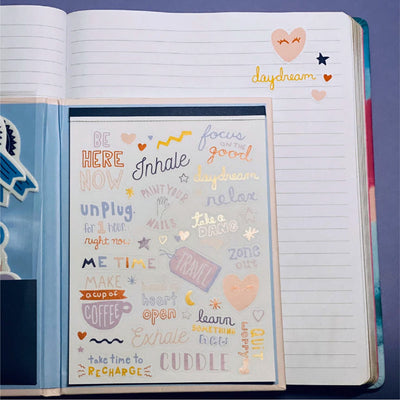 daydream
BE
HERE
NOW
Inhale
focus
ON THE
good
daydream
PAINT YOUR
NAILS
relax
unplug
for 1 hour
right now
take a
DANG
ME TIME
TRAVEL
zone
out
MAKE
a cup of
COFFEE
heart
open
learn
SOMETHING
NEW
Exhale
QUIT
WORRY
take time to
RECHARGE
CUDDLE